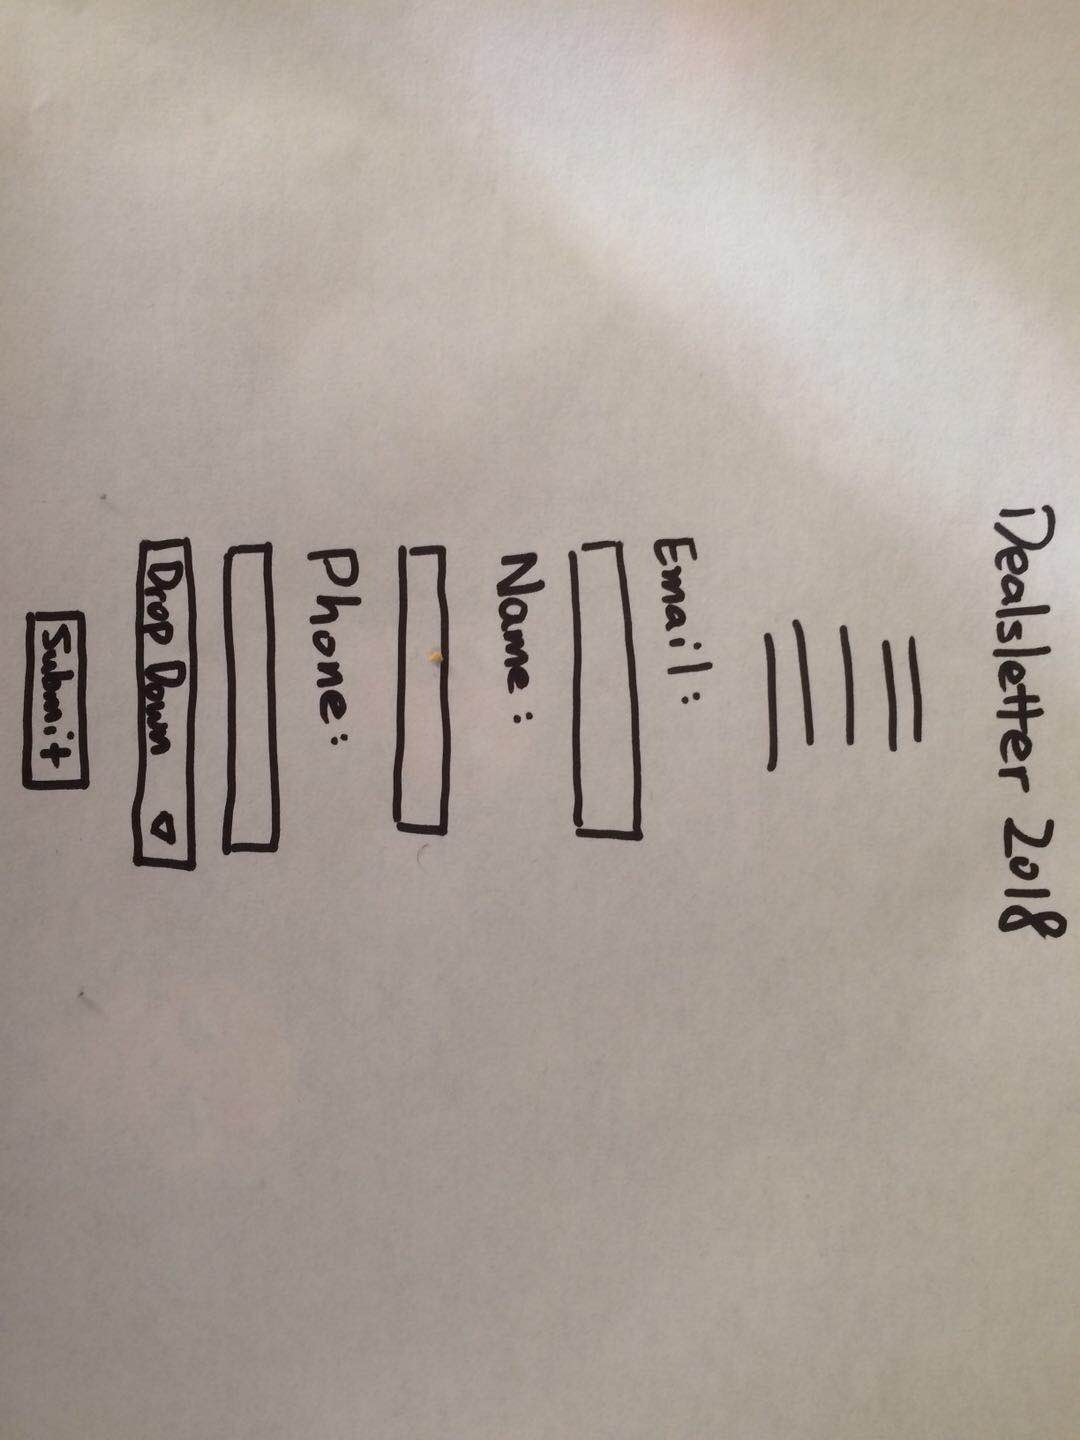 Dealsletter 2018
Email:
Name:
Phone:
Drop Down
Submit